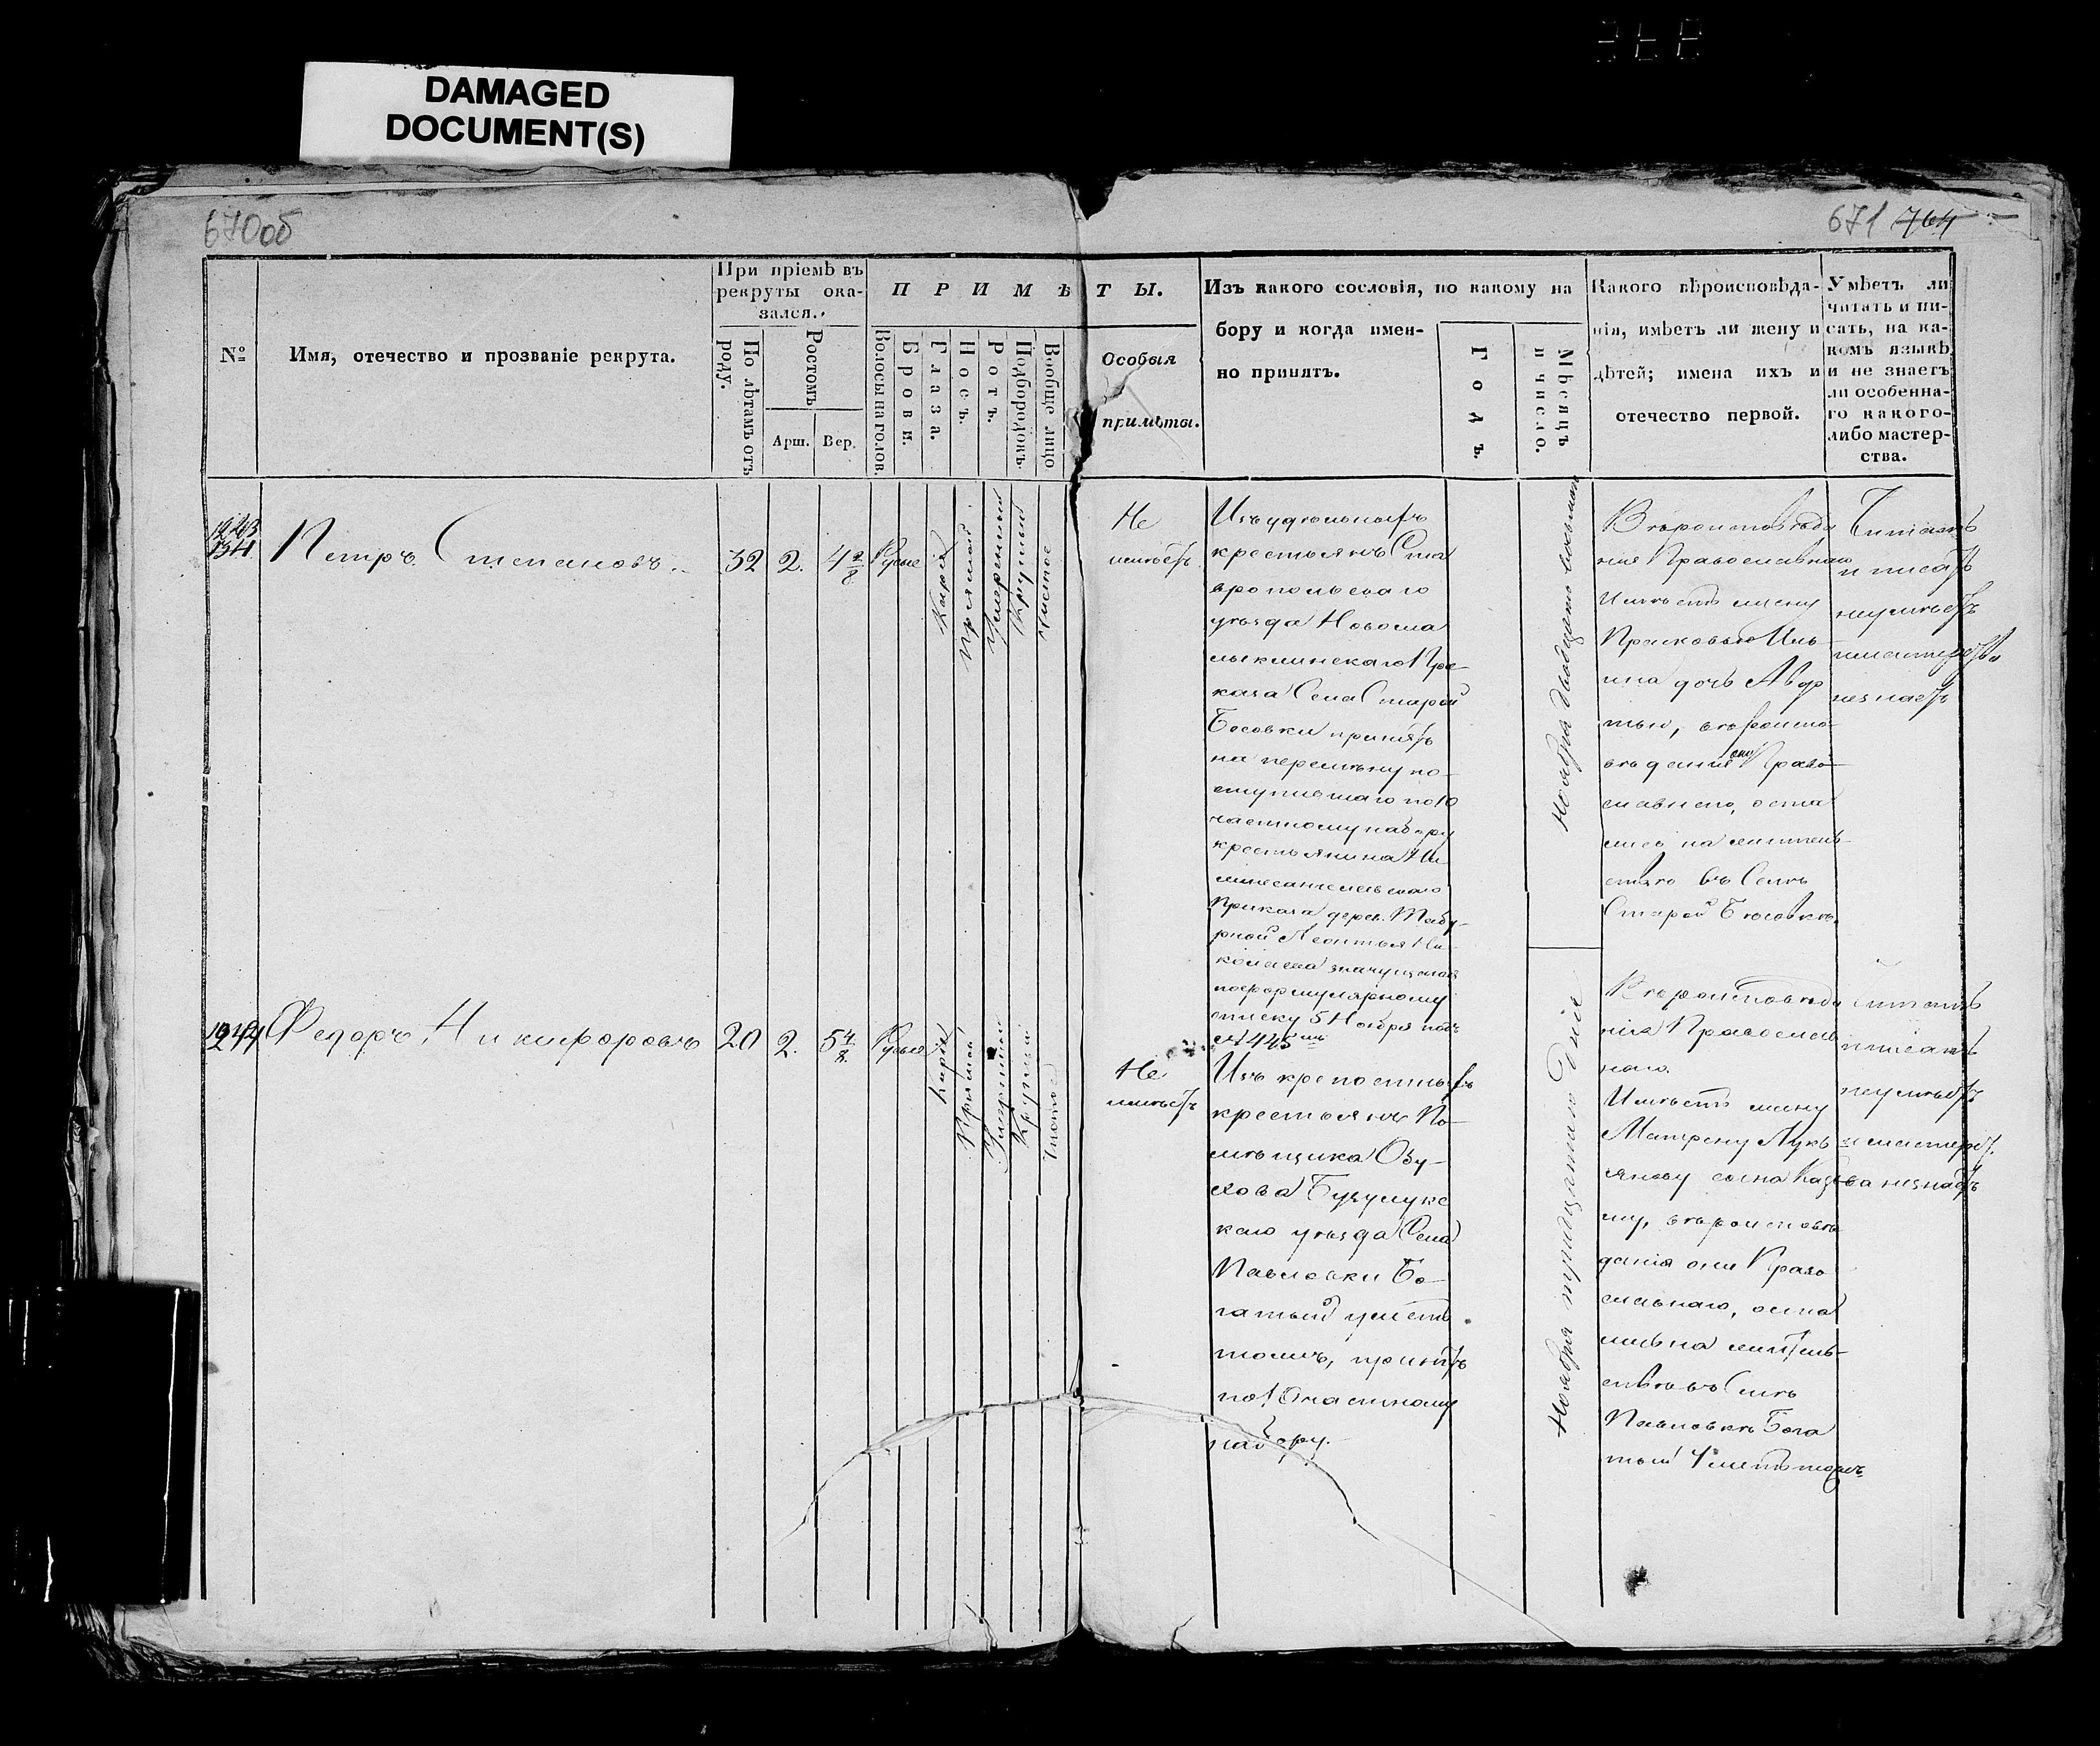 DAMAGED
DOCUMENT(S)
670об
671 764
№
Имя, отечество и прозваніе рекрута.
При пріемѣ въ
рекруты ока-
зался.
По лѣтамъ отъ
роду.
Ростомъ
Арш.
Вер.
ПРИМѢТЫ.
Волосы на голов.
Брови.
Глаза.
Носъ.
Ротъ.
Подбородокъ
Вообще лицо
Особыя
примѣты.
Изъ какого сословія, по какому на
бору и когда имен-
но принятъ.
Годъ.
Мѣсяцъ
и число.
Какого вѣроисповѣда-
нія, имѣетъ ли жену и
дѣтей; имена ихъ и
отечество первой.
Умѣетъ ли
читать и пи-
сать, на ка-
комъ языкѣ
и не знаетъ
ли особенна-
го какого-
либо мастер-
ства.
Петръ Степановъ.
32
2.
4 2/8
Русые
Каріе
Прямой
Умеренный
Круглый
Чистое
Не
имѣетъ
Изъ удѣльныхъ
крестьянъ Ста
вропольскаго
уѣзда Новома
лыклинскаго При-
каза Села Старой
Бесовки принятъ
на перемѣну по-
ступившаго по 10
частному набору
крестьянина
Приказа дерев.
Леонтья Ни-
колаева значущагося
по формулярному
списку 5 Ноября подъ
№ 1445 мъ
Ноября двадцать
Вѣроисповѣда
нія Православнаго
Имѣетъ жену
Прасковью Иль
ина дочь
вѣроиспо-
вѣданія они Право-
славнаго, оста
лись на житель-
ствѣ въ Селѣ
Старой Бесовкѣ.
Читать
и писать
неумѣетъ
мастерства
незнаетъ
1244
Федоръ Никифоровъ
20
2.
5 4/8
Русые
Каріе
Прямой
Умеренный
Круглый
Чистое
Не
имѣетъ
Изъ крепостныхъ
крестьянъ По-
мѣщика Обу-
хова Бузулукс
каго уѣзда Села
Павловки Бо-
гатый уметъ
тожъ, принятъ
по 10 частному
набору.
Ноября тридцатаго дня
Вѣроисповѣда
нія Православ
наго.
Имѣетъ жену
Матрену Лукь
янову сына
му, вѣроисповѣ
данія они Право
славнаго, оста
лись на житель-
ствѣ въ Селѣ
Павловкѣ Бога
тый Уметъ тожъ.
читать
и писать
неумѣетъ
и мастерст.
ва незнаетъ